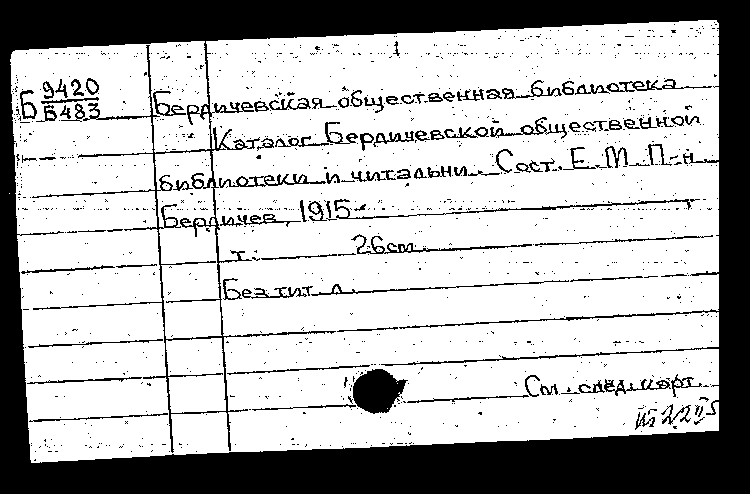 Б 9420
Б483
Бердичевская общественная библиотека
Каталог Бердичевской общественной
библиотеки и читальни. Сост. Е. М. П-н
Бердичев, 1915-
т. 26cm.
Без тит. л.
См. след. карт.